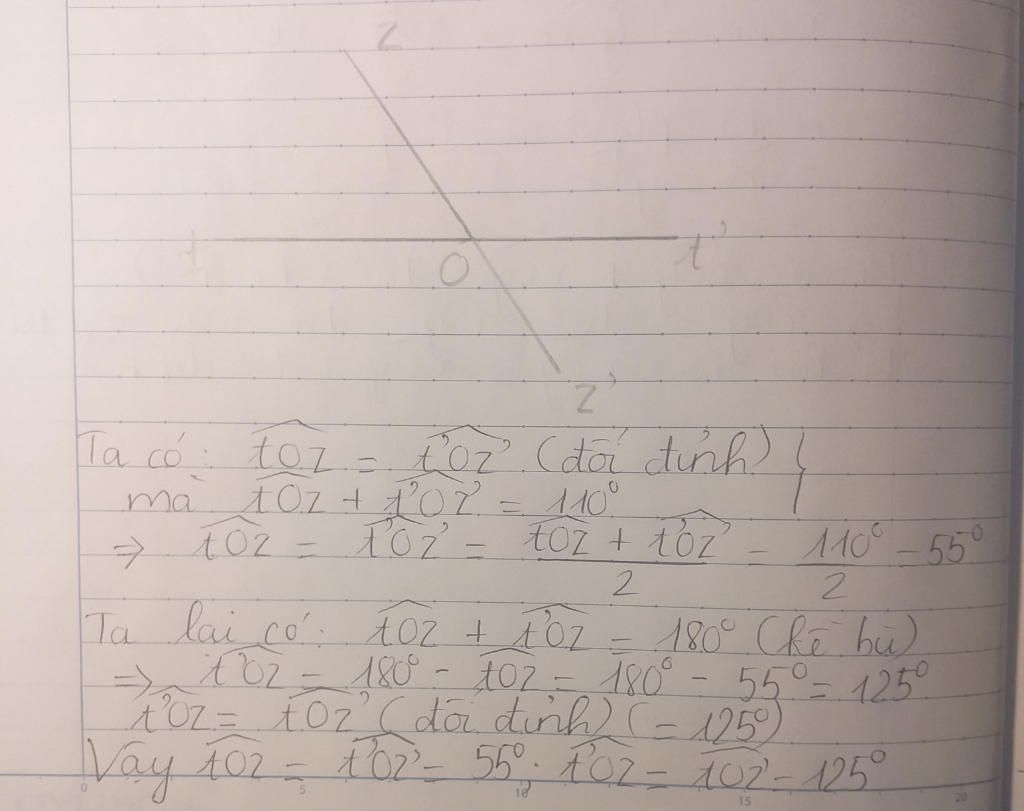 z
t
O
t'
z'
Ta có: tOz = t'Oz' (đối đỉnh) }
mà tOz + t'Oz' = 110°
⇒ tOz = t'Oz' = (tOz + t'Oz')/2 = 110°/2 = 55°
Ta lại có: tOz + t'Oz = 180° (kề bù)
⇒ t'Oz = 180° - tOz = 180° - 55° = 125°
t'Oz = tOz' (đối đỉnh) (= 125°)
Vậy tOz = t'Oz' = 55°. t'Oz = tOz' = 125°
0 5 10 15 20